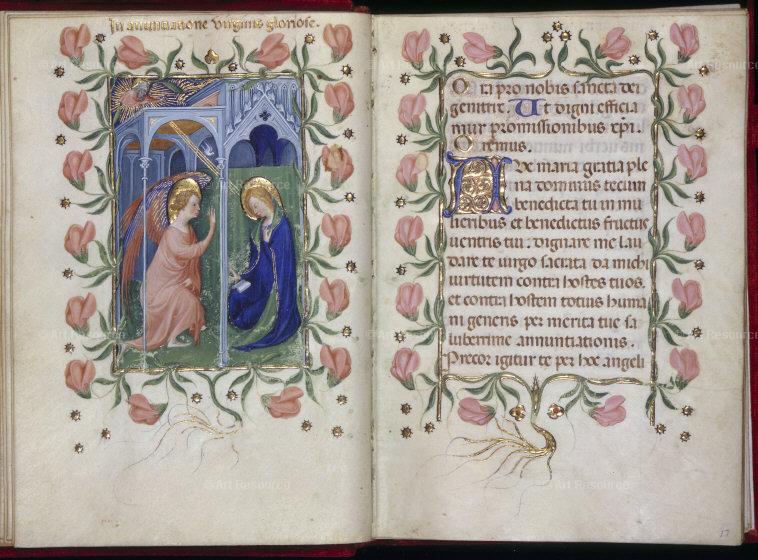 In annuntiatione virginis gloriose.
Ora pro nobis sancta dei
genitrix. Ut digni efficia
mur promissionibus xpi.
Oremus.
Ave maria gratia ple
na dominus tecum
benedicta tu in mu
lieribus et benedictus fructus
ventris tui. dignare me lau
dare te virgo sacrata da michi
virtutem contra hostes tuos.
et contra hostem totius huma
ni generis per merita tue sa
luberrime annuntiationis.
Precor igitur te per hoc angeli
17
© Art Resource